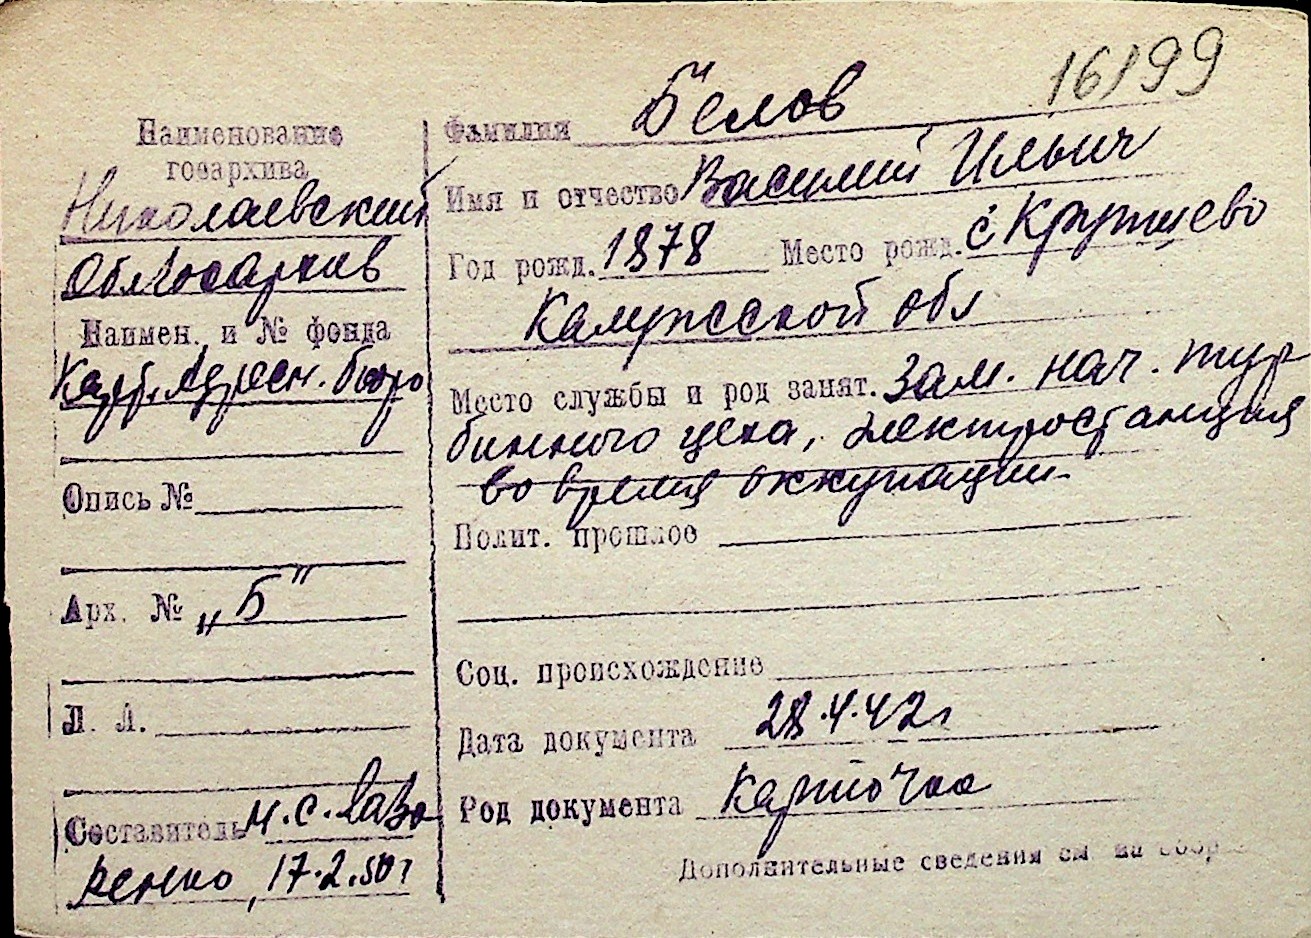 16199
Наименование
госархива
Николаевский
Облгосархив
Наимен. и № фонда
Карт. Адресн. бюро
Опись №
Арх. № „Б"
Л. Л.
Составитель М. С. Лаза
ренко, 17.2.50г
Фамилия Белов
Имя и отчество Василий Ильич
Год рожд. 1878 Место рожд. с
Калужской обл
Место службы и род занят. Зам. нач. тур
бинного цеха, электростанция
во время оккупации
Полит. прошлое
Соц. происхождение
Дата документа 28.4.42г
Род документа Карточка
Дополнительные сведения см. на обор